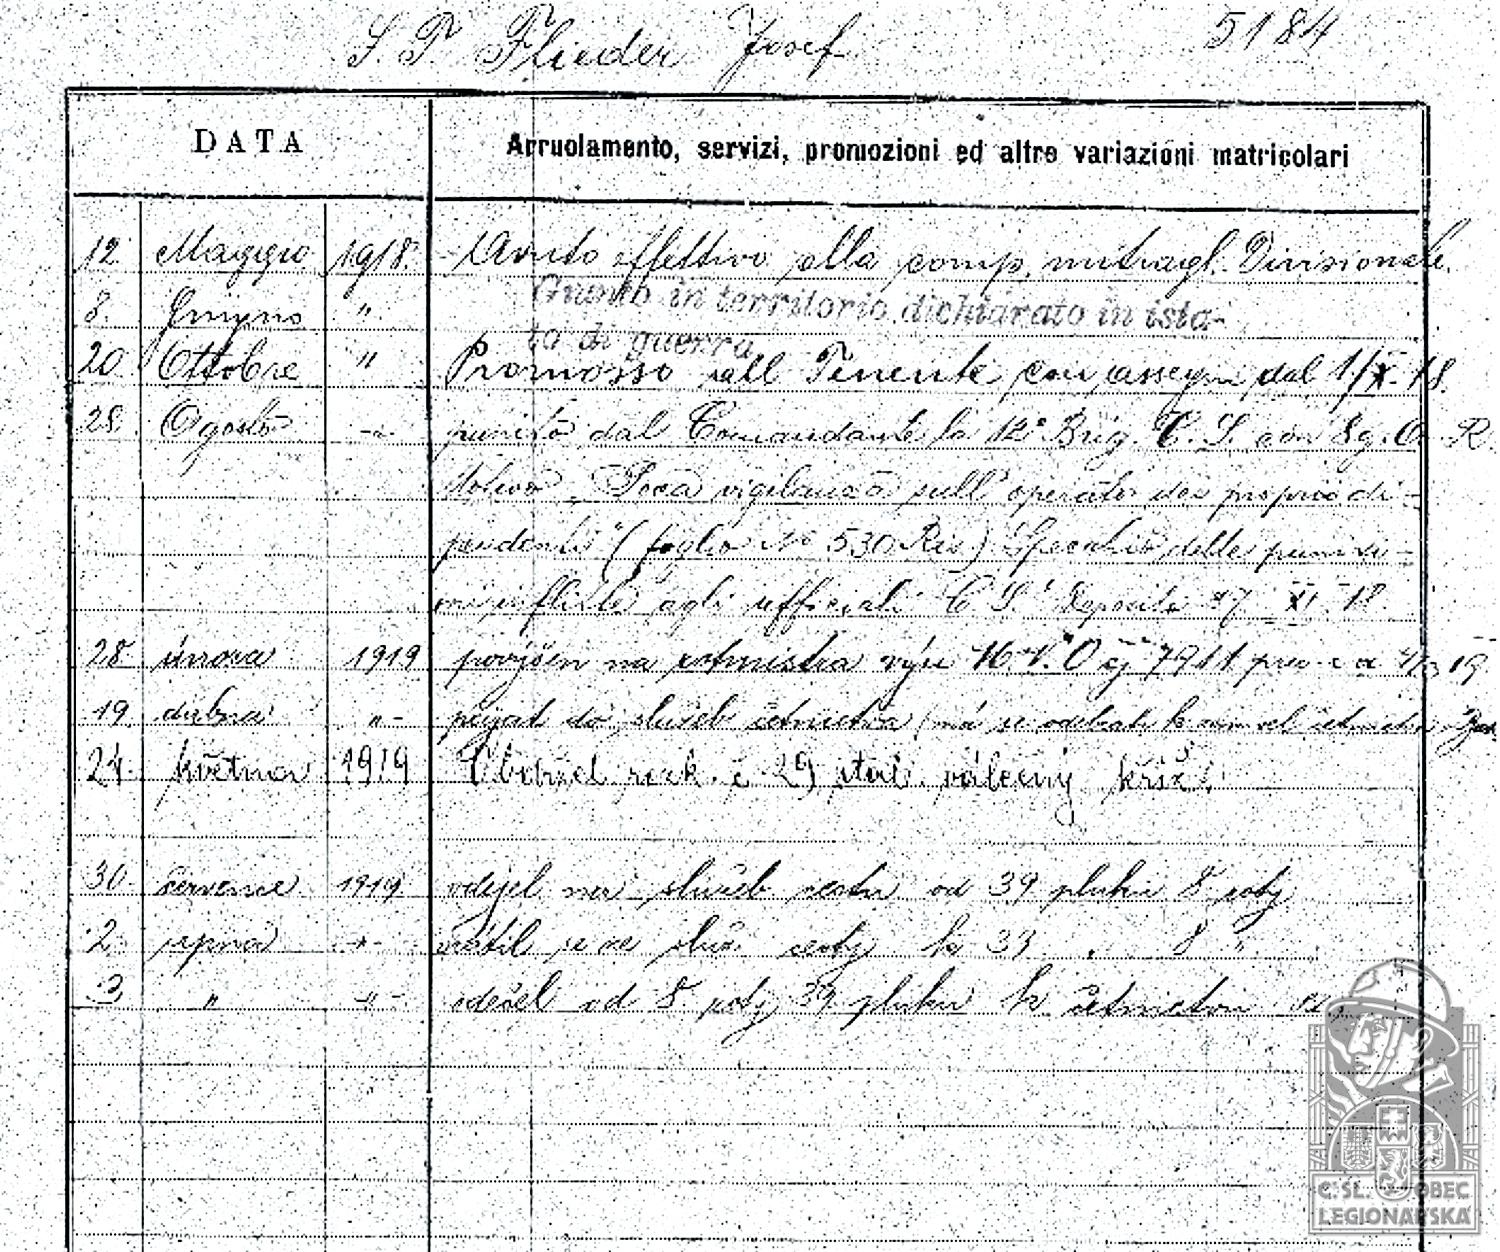 S. T. Flieder Josef 5184
DATA
Arruolamento, servizi, promozioni ed altre variazioni matricolari
12. Maggio 1918. effettivo alla comp. mitragl. Divisionale.
8. Giugno " Giunto in territorio dichiarato in ista-
to di guerra
20. Ottobre " Promosso Tenente con assegni dal 1/X.18.
28. Agosto -"- punito dal Comandante la 12ª Brig. C. S. con 8 g. R.
Motivo "Poca vigilanza sull' operato dei propri di-
pendenti" (foglio No 530 Ris) Specchio delle puni
inflitte agli ufficiali C S Deposito 27 XI 18
28 února 1919 povýšen na rotmistra 7911 19
19 dubna -"- do služeb četnictva má se odebrati k
24. května 1919 Obdržel rozk. č. 29 ital. válečný kříž.
30 července 1919 odejel na služeb. cestu od 39 pluku 8 roty
2. srpna -"- vrátil se ze služ. cesty k 39 . 8 "
3. " -"- odešel od 8 roty 39 pluku k četnictvu
Č. SL. OBEC
LEGIONÁŘSKÁ